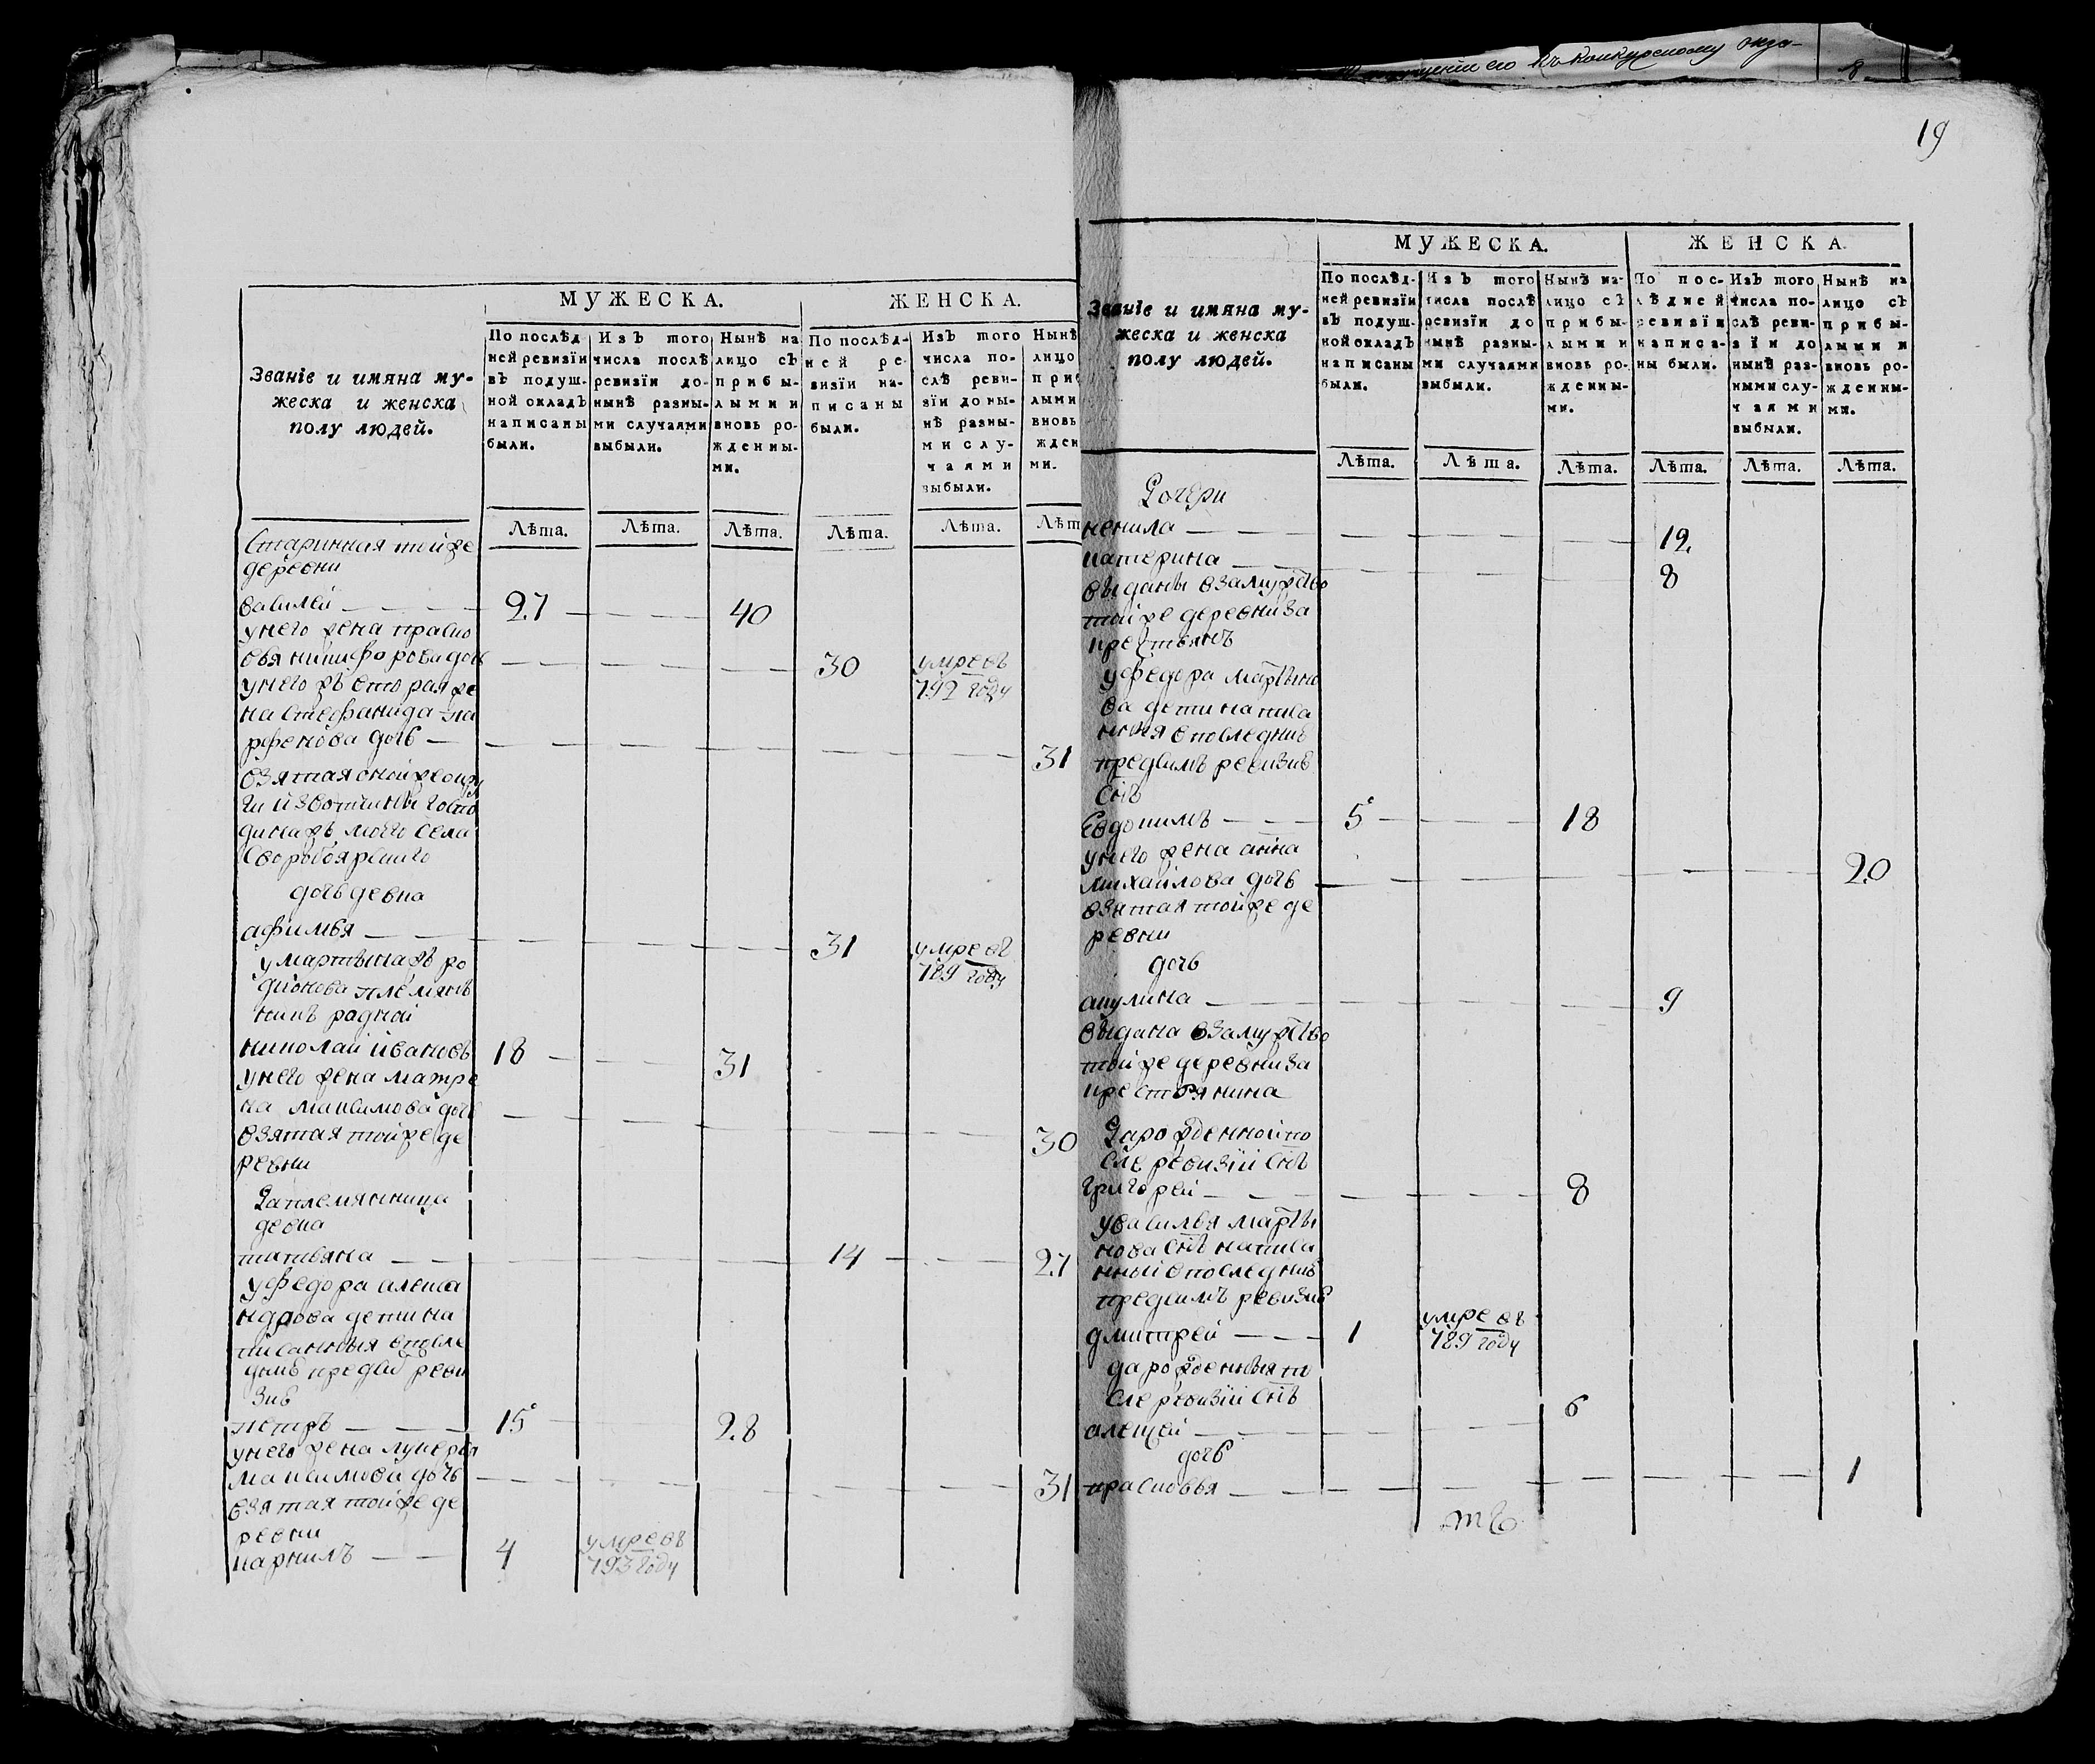 Къ конкурсному
8.
19
Званіе и имяна му-
жеска и женска
полу людей.
МУЖЕСКА.
ЖЕНСКА.
По послѣд
ней ревизїи
въ подуш-
ной окладъ
написаны
были.
Изъ того
числа послѣ
ревизїи до-
нынѣ разны-
ми случаями
выбыли.
Нынѣ на
лицо съ
прибы-
лыми и
вновь ро-
жденны-
ми.
По послѣд-
ней ре-
визїи на-
писаны
были.
Изъ того
числа по-
слѣ реви-
зїи до ны-
нѣ разны-
ми слу-
чаями
выбыли.
Нынѣ
лицо
при
лыми
вновь
жден
ми.
Лѣта. Лѣта. Лѣта. Лѣта. Лѣта. Лѣт
Старинная тойже
деревни
василей 27 40
унего жена праско
вья никифорова дочь 30 умре въ
792 году
унего жъ вторая же
на стефанида па
рфенова дочь 31
взятая оной же окру
ги извотчины госпо
дина жъ моего села
дочь девка
афимья 31 умре въ
789 году
умартына жъ ро
дионова племян
никъ родной
николай ивановъ 18 31
унего жена матре
на максимова дочь 30
взятая тойже де
ревни
Даплемянница
девка
татьяна 14 27
уфедора алекса
ндрова дети на
писанныя впосле
дней пред сей реви
зие
петръ 15 28
унего жена лукерья
максимова дочь 31
взятая тойже де
ревни
карнилъ 4 умре въ
793 году
Званіе и имяна му-
жеска и женска
полу людей.
МУЖЕСКА.
ЖЕНСКА.
По послѣд-
ней ревизїи
въ подуш-
ной окладъ
написаны
были.
Изъ того
числа послѣ
ревизїи до
нынѣ разны-
ми случаями
выбыли.
Нынѣ на-
лицо съ
прибы-
лыми и
вновь ро-
жденны-
ми.
По пос-
лѣдней
ревизїи
написа-
ны были.
Изъ того
числа по-
слѣ реви-
зїи до
нынѣ раз-
ными слу-
чаями
выбыли.
Нынѣ на
лицо съ
прибы-
лыми и
вновь ро-
жденны-
ми.
Лѣта. Лѣта. Лѣта. Лѣта. Лѣта. Лѣта.
Дочери
ненила 19.
катерина 8
выданы взамужство
тойже деревни за
крестьянъ
уфедора марты но
ва дети написа
нныя впоследние
предсимъ ревизие
снъ
Евдокимъ 5 18
унего жена анна
михайлова дочь 20
взятая тойже де
ревни
дочь
акулина 9
выдана взамужство
тойже деревни за
крестьянина
Дарожденной по
сле ревизии снъ
григорей 8
увасилья марты
нова снъ написа
нный впоследние
предсимъ ревизие
дмитрей 1 умре въ
789 году
да рожденныя по
сле ревизии снъ
алексей 6
дочь
прасковья 1